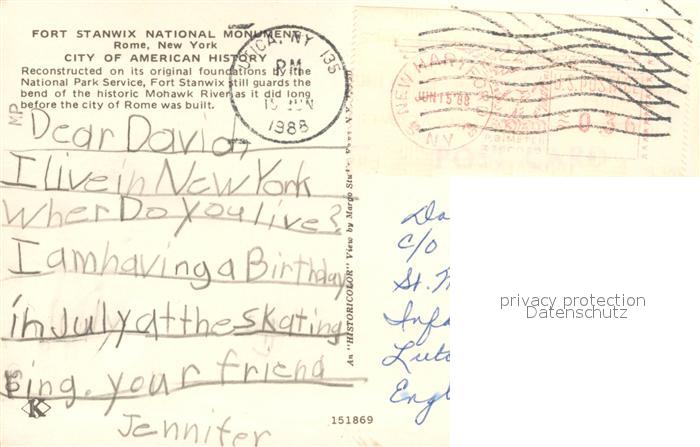 FORT STANWIX NATIONAL MONUMENT
Rome, New York
CITY OF AMERICAN HISTORY
Reconstructed on its original foundations by the
National Park Service, Fort Stanwix still guards the
bend of the historic Mohawk River as it did long
before the city of Rome was built.
UTICA, NY 135
PM
15 JUN
1988
NEW HARTFORD
JUN 15 88
NY
U.S. POSTAGE
0.36
POST CARD
MP
Dear David,
I live in New York
Wher Do you live?
I am having a Birthday
in July at the skating
ring. your friend
Jennifer
An "HISTORICOLOR" View by Margo
K
151869
Da
c/o
St.
Infa
Lut
Engl
privacy protection
Datenschutz